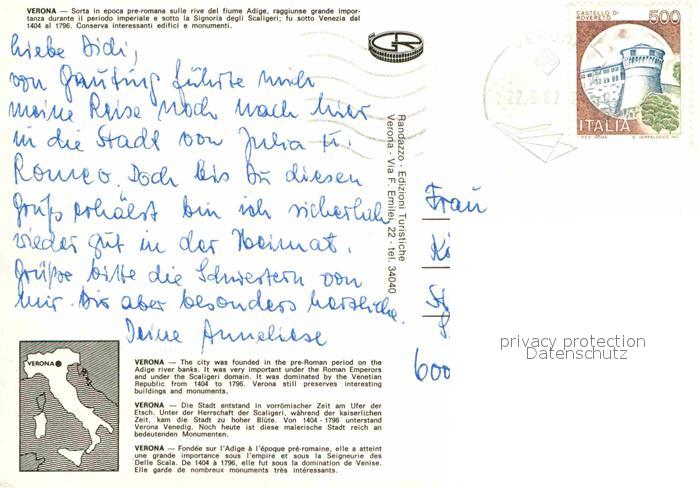 VERONA — Sorta in epoca pre-romana sulle rive del fiume Adige, raggiunse grande impor-
tanza durante il periodo imperiale e sotto la Signoria degli Scaligeri; fu sotto Venezia dal
1404 al 1796. Conserva interessanti edifici e monumenti.
Liebe Didi,
von Gauting führte mich
meine Reise noch nach hier
in die Stadt von Julia u.
Romeo. Doch bis Du diesen
Gruß erhälst bin ich sicherlich
wieder gut in der Heimat.
Grüße bitte die Schwestern von
mir. Dir aber besonders herzliche.
Deine Anneliese
GR
Randazzo - Edizioni Turistiche
Verona - Via F. Emilei, 22 - tel. 34040
VERONA
22.9.87
CASTELLO DI
ROVERETO
500
ITALIA
Frau
Ki
St
600
privacy protection
Datenschutz
VERONA
VERONA — The city was founded in the pre-Roman period on the
Adige river banks. It was very important under the Roman Emperors
and under the Scaligeri domain. It was dominated by the Venetian
Republic from 1404 to 1796. Verona still preserves interesting
buildings and monuments.
VERONA — Die Stadt entstand in vorrömischer Zeit am Ufer der
Etsch. Unter der Herrschaft der Scaligeri, während der kaiserlichen
Zeit, kam die Stadt zu hoher Blüte. Von 1404 - 1796 unterstand
Verona Venedig. Noch heute ist diese malerische Stadt reich an
bedeutenden Monumenten.
VERONA — Fondée sur l'Adige à l'époque pré-romaine, elle a atteint
une grande importance sous l'empire et sous la Seigneurie des
Delle Scala. De 1404 à 1796, elle fut sous la domination de Venise.
Elle garde de nombreux monuments très intéressants.